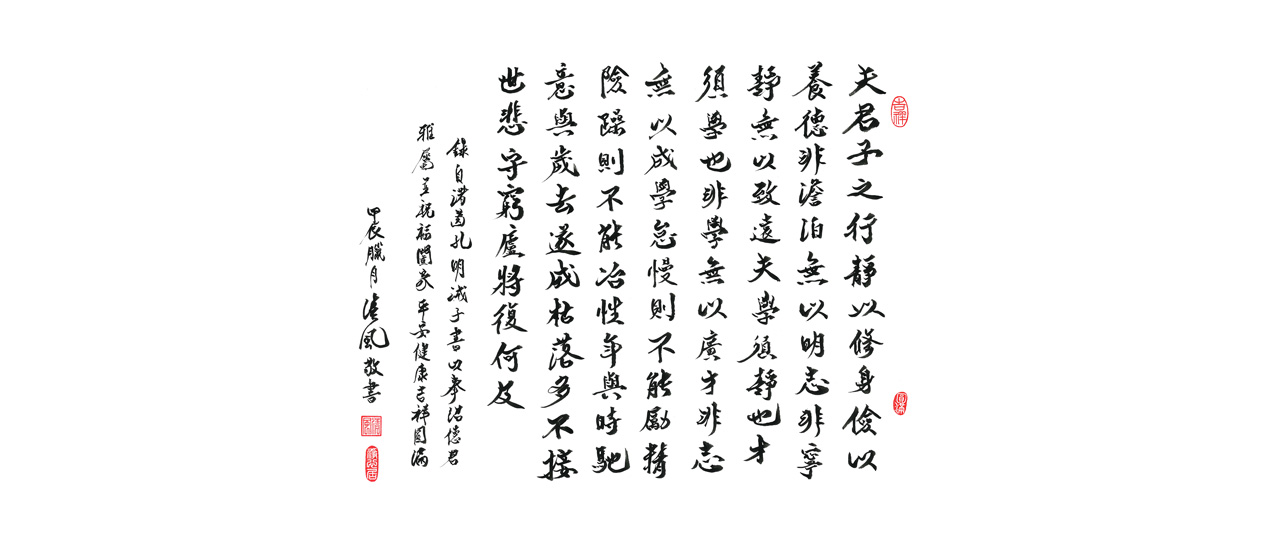 吉祥
夫君子之行靜以修身儉以
養德非澹泊無以明志非寧
靜無以致遠夫學須靜也才
須學也非學無以廣才非志
無以成學怠慢則不能勵精
險躁則不能冶性年與時馳
意與歲去遂成枯落多不接
世悲守窮廬將復何及
錄自諸葛孔明誡子書以奉君
雅屬並祝福闔家平安健康吉祥圓滿
甲辰臘月風敬書
圓滿